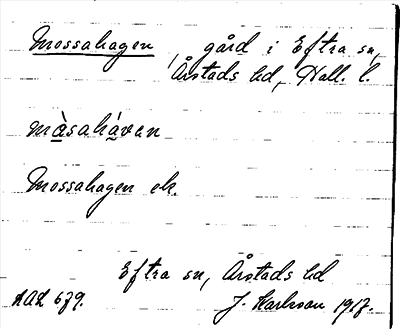 Mossahagen, gård i Eftra sn,
Årstads hd, Hall. l.
màsahávan
Mossahagen ek.
Eftra sn, Årstads hd
AAL 679. J. Karlsson 1917.